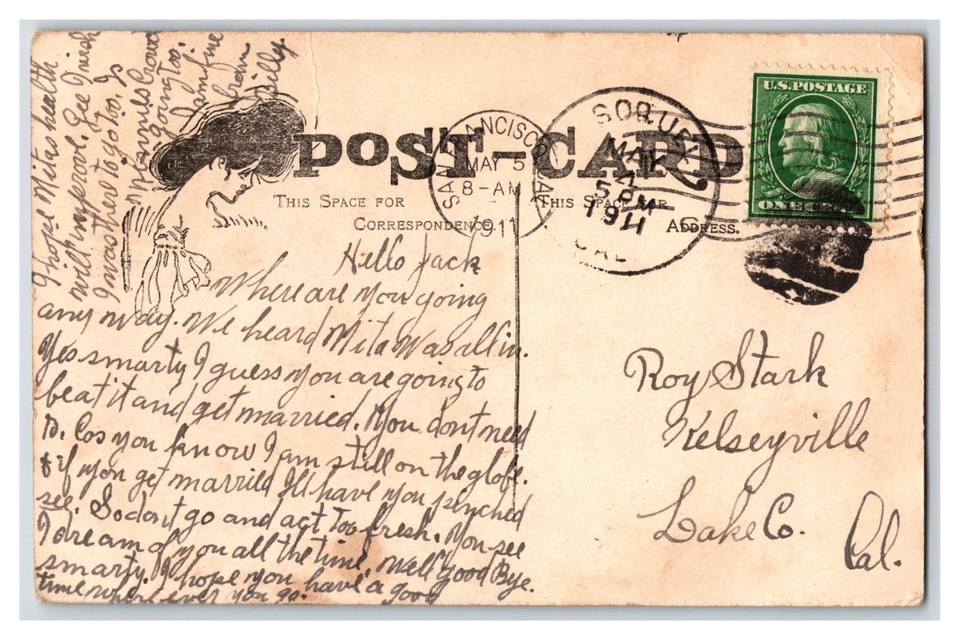 POST-CARD
THIS SPACE FOR
CORRESPONDENCE.
THIS SPACE FOR
ADDRESS.
U.S. POSTAGE
ONE CENT
SAN FRANCISCO CAL
MAY 5
8-AM
1911
SOQUEL
MAY
4
5 PM
1911
CAL
Hello Jack
Where are you going
any way. We heard Mita was all in.
Yes smarty I guess you are going to
beat it and get married. You dont need
to. Cos you know I am still on the globe.
& if you get married Ill have you pinched
see. So dont go and act too fresh. You see
I dream of you all the time. Well good Bye.
smarty. I hope you have a good
time where ever you go.
I hope Mitas health
will improve. Gee I wish
I was there to go too, if
Brown
going too.
Billy.
Roy Stark
Kelseyville
Lake Co.
Cal.